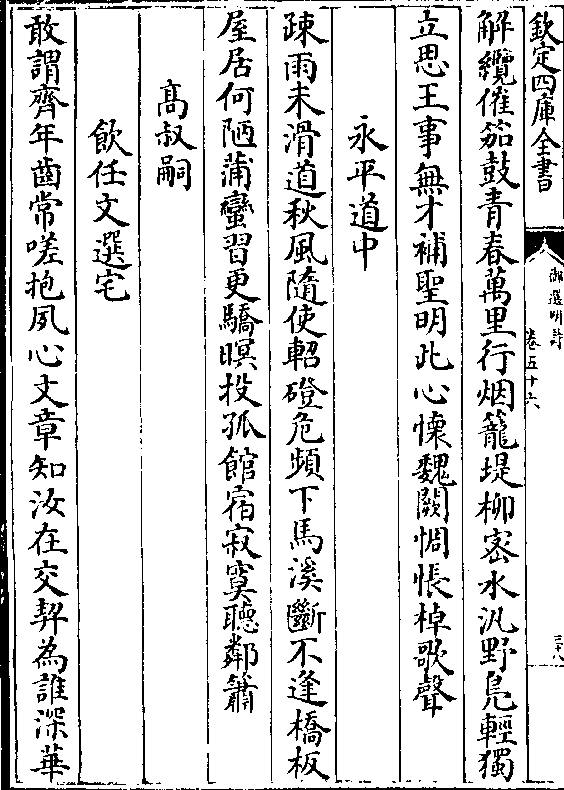 欽定四庫全書
御選明詩
卷五十六
三十八
解纜催笳鼓青春萬里行烟籠堤柳密水汎野鳧輕獨
立思王事無才補聖明此心懐魏闕惆悵棹歌聲
永平道中
踈雨未滑道秋風隨使軺磴危頻下馬溪斷不逢橋板
屋居何陋蒲蠻習更驕暝投孤館宿寂寞聽鄰簫
髙叔嗣
飲任文選宅
敢謂齊年齒常嗟抱夙心文章知汝在交契為誰深華